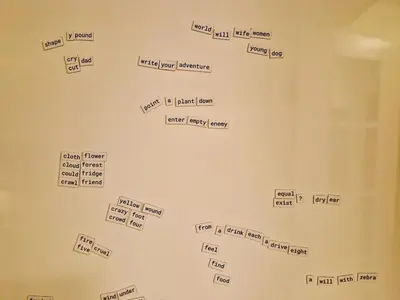 world will wife women
shape y pound
young dog
cry dad
cut
write your adventure
point a plant down
enter empty enemy
cloth flower
cloud forest
could fridge
crawl friend
equal
exist ? dry ear
yellow wound
crazy foot
crowd four
from a drink each a drive eight
fire
five cruel
feel
find
food
a will with zebra
wind under